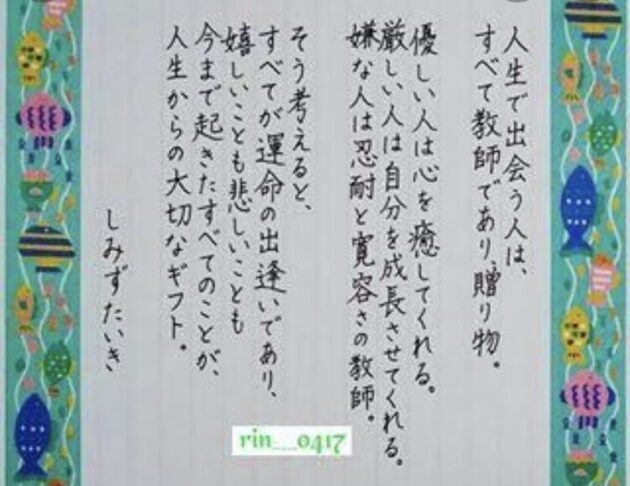 人生で出会う人は、
すべて教師であり、贈り物。
優しい人は心を癒してくれる。
厳しい人は自分を成長させてくれる。
嫌な人は忍耐と寛容さの教師。
そう考えると、
すべてが運命の出逢いであり、
嬉しいことも悲しいことも
今まで起きたすべてのことが、
人生からの大切なギフト。
しみずたいき
rin__0417